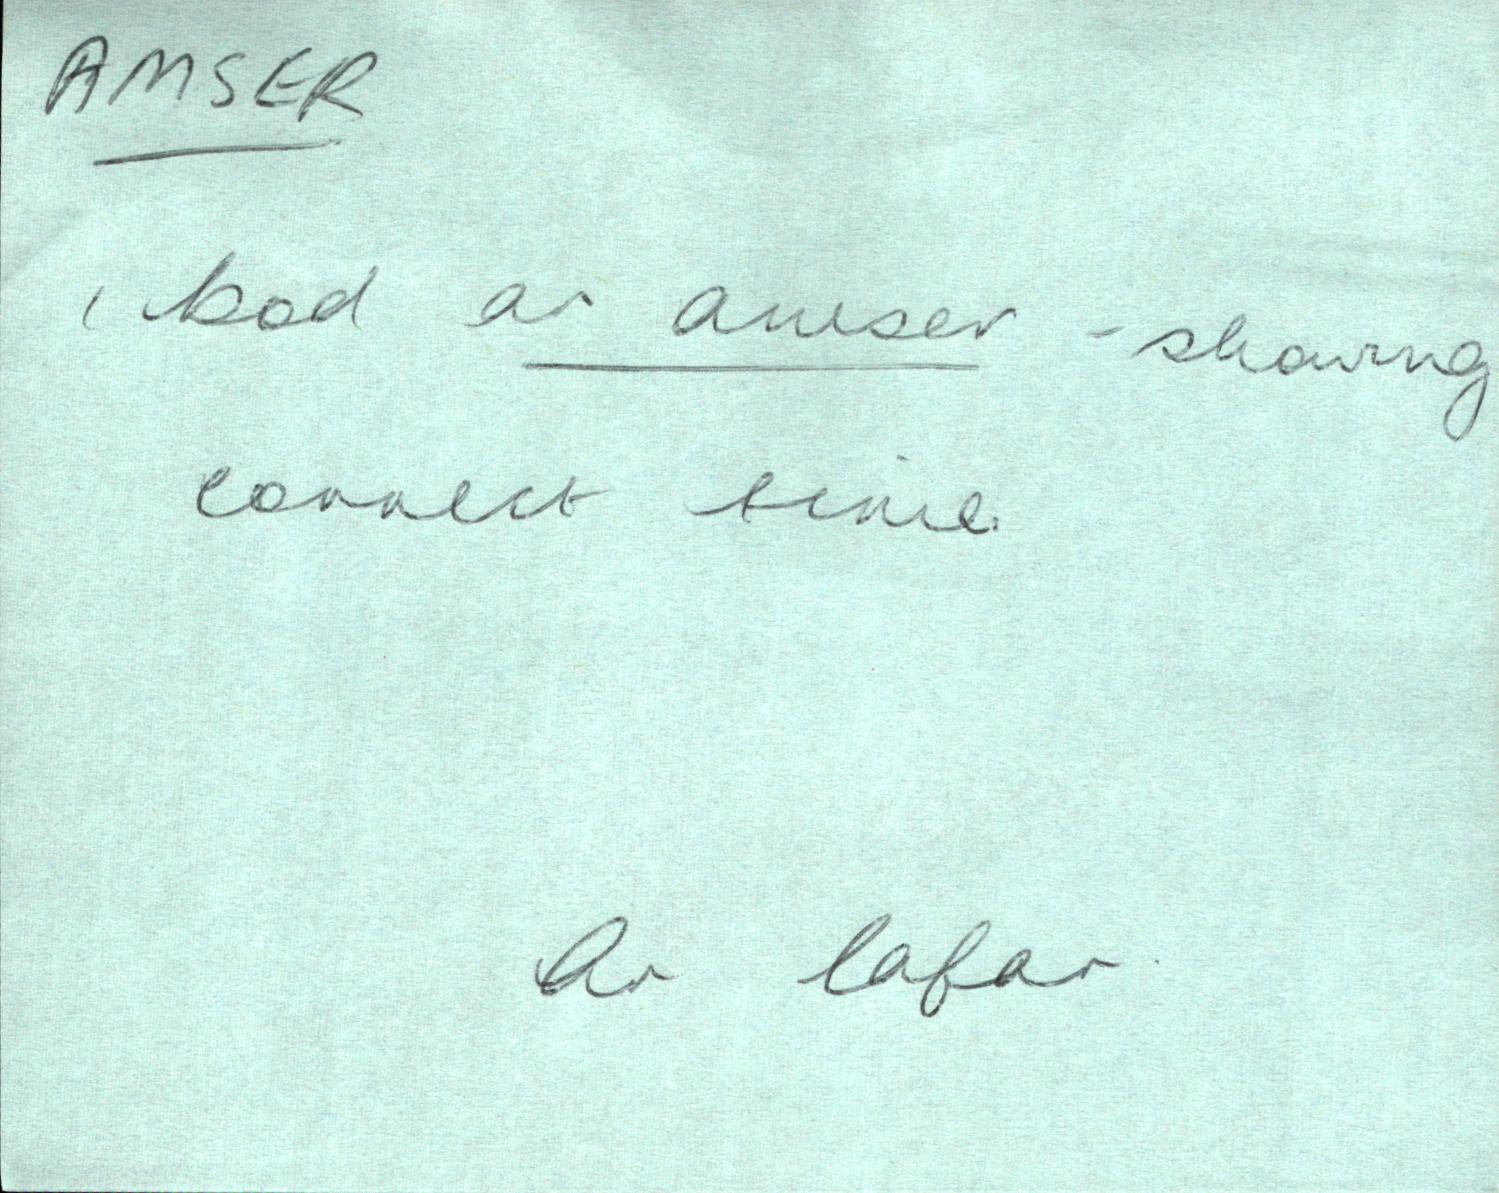 AMSER
, bod ar amser - showing
correct time.
Ar lafar